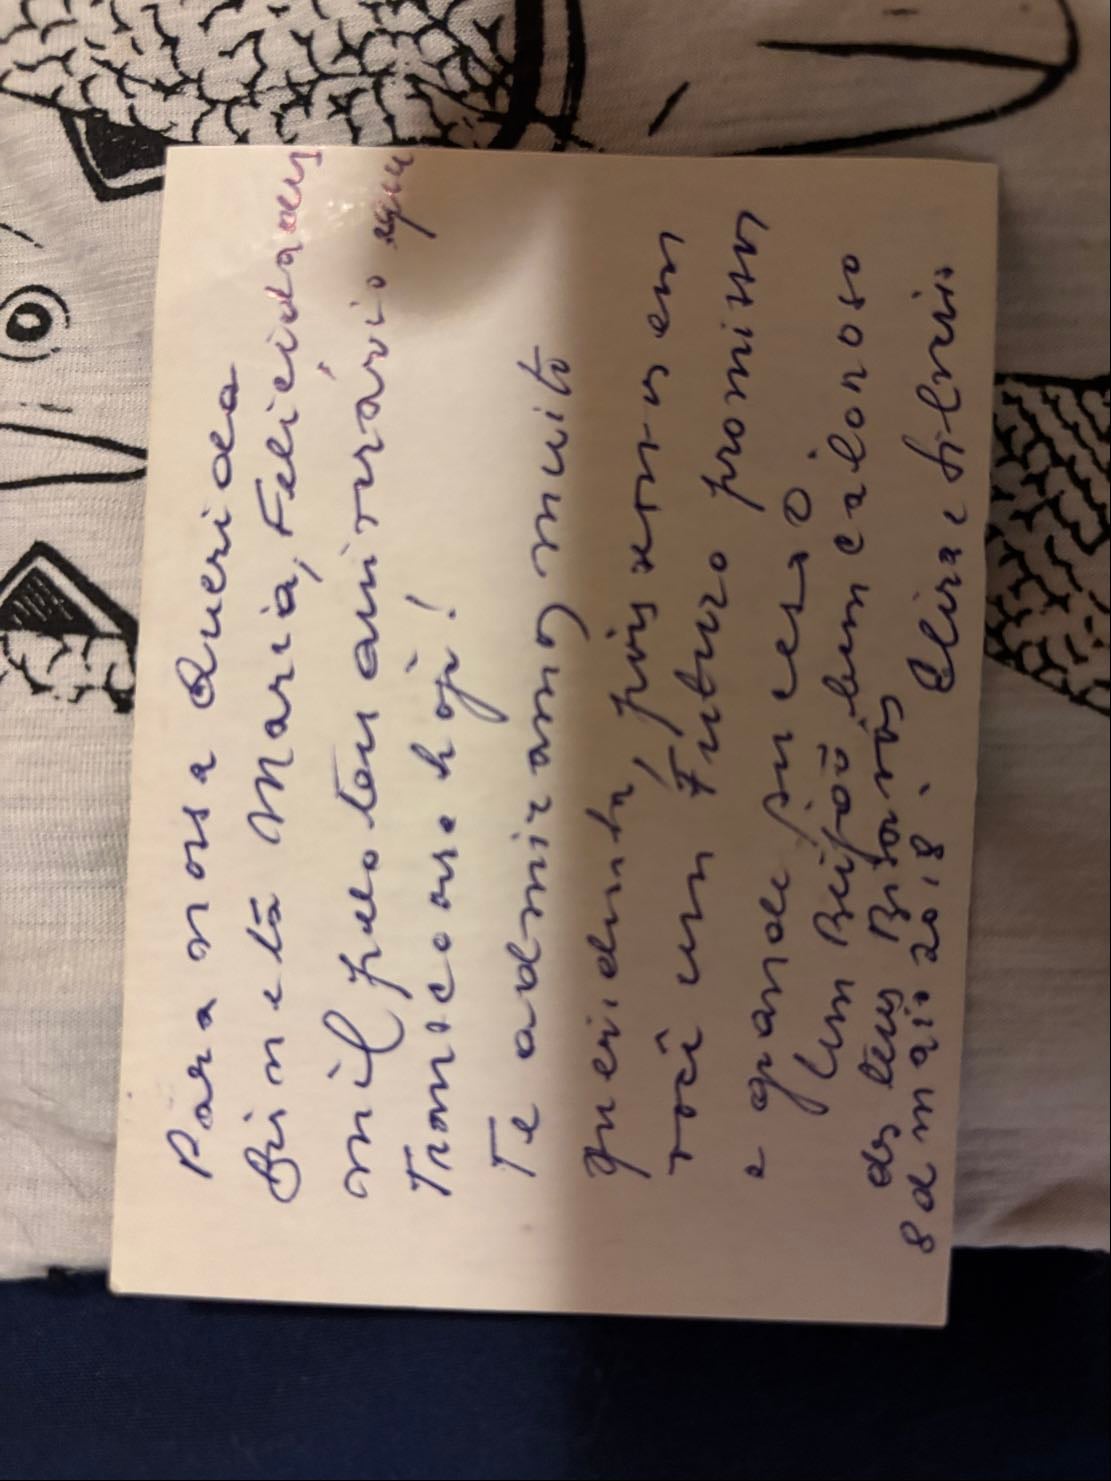 Para nossa Querida
Bisneta Maria, Felicidades
mil pelo teu aniversário que
Transcorre hoje!
Te admiramos muito
queridinha, pois vemos em
você um Futuro promissor
e grande sucesso.
Um Beijão bem caloroso
dos teus Bisavós
8 d maio 2018. Elira e